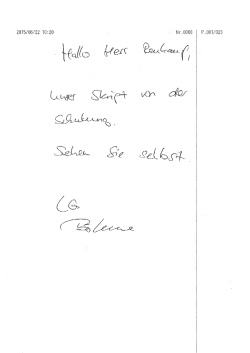 2015/06/22 10:20 Nr. 0000 P. 001/023
Hallo Herr
unser Skript von der
Schulung.
Sehen Sie selbst
LG